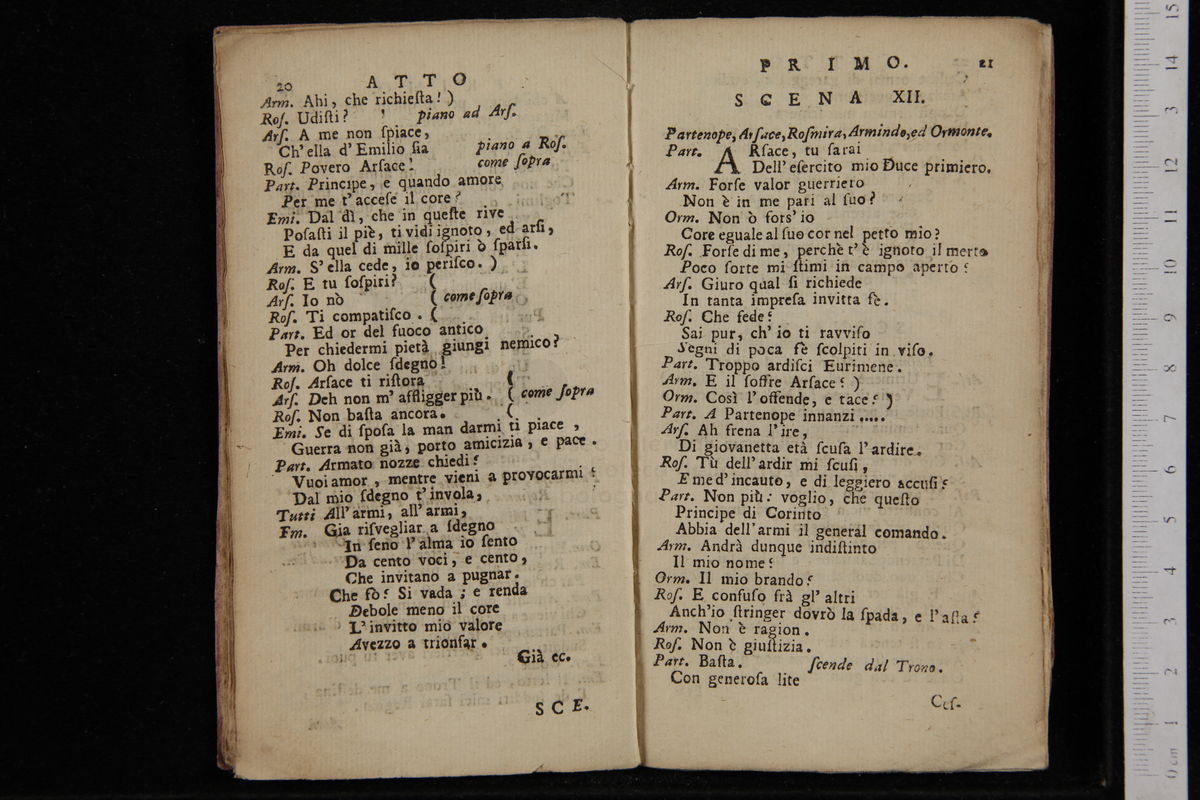 20 ATTO
Arm. Ahi, che richieſta! )
Roſ. Udiſti? piano ad Arſ.
Arſ. A me non ſpiace,
Ch' ella d' Emilio ſia piano a Roſ.
Roſ. Povero Arſace! come ſopra
Part. Principe, e quando amore
Per me t' acceſe il core?
Emi. Dal dì, che in queſte rive
Poſaſti il piè, ti vidi ignoto, ed arſi,
E da quel dì mille ſoſpiri ò ſparſi.
Arm. S' ella cede, io periſco. )
Roſ. E tu ſoſpiri? (
Arſ. Io nò ( come ſopra
Roſ. Ti compatiſco. (
Part. Ed or del fuoco antico
Per chiedermi pietà giungi nemico?
Arm. Oh dolce ſdegno!
Roſ. Arſace ti riſtora (
Arſ. Deh non m' affligger più. ( come ſopra
Roſ. Non baſta ancora. (
Emi. Se di ſpoſa la man darmi ti piace,
Guerra non già, porto amicizia, e pace.
Part. Armato nozze chiedi?
Vuoi amor, mentre vieni a provocarmi?
Dal mio ſdegno t' invola,
Tutti All' armi, all' armi,
Em. Gia riſvegliar a ſdegno
In ſeno l' alma io ſento
Da cento voci, e cento,
Che invitano a pugnar.
Che fò? Si vada; e renda
Debole meno il core
L' invitto mio valore
Avezzo a trionfar.
Già ec.
SCE.
PRIMO. 21
SCENA XII.
Partenope, Arſace, Roſmira, Armindo, ed Ormonte.
Part. ARſace, tu ſarai
Dell' eſercito mio Duce primiero.
Arm. Forſe valor guerriero
Non è in me pari al ſuo?
Orm. Non ò forſ' io
Core eguale al ſuo cor nel petto mio?
Roſ. Forſe di me, perchè t' è ignoto il merto
Poco forte mi ſtimi in campo aperto?
Arſ. Giuro qual ſi richiede
In tanta impreſa invitta fè.
Roſ. Che fede?
Sai pur, ch' io ti ravviſo
Segni di poca fè ſcolpiti in viſo.
Part. Troppo ardiſci Eurimene.
Arm. E il ſoffre Arſace? )
Orm. Così l' offende, e tace? )
Part. A Partenope innanzi .....
Arſ. Ah frena l' ire,
Di giovanetta età ſcuſa l' ardire.
Roſ. Tù dell' ardir mi ſcuſi,
E me d' incauto, e di leggiero accuſi?
Part. Non più: voglio, che queſto
Principe di Corinto
Abbia dell' armi il general comando.
Arm. Andrà dunque indiſtinto
Il mio nome?
Orm. Il mio brando?
Roſ. E confuſo frà gl' altri
Anch' io ſtringer dovrò la ſpada, e l' aſta?
Arm. Non è ragion.
Roſ. Non è giuſtizia.
Part. Baſta. ſcende dal Trono.
Con generoſa lite
Ceſ-